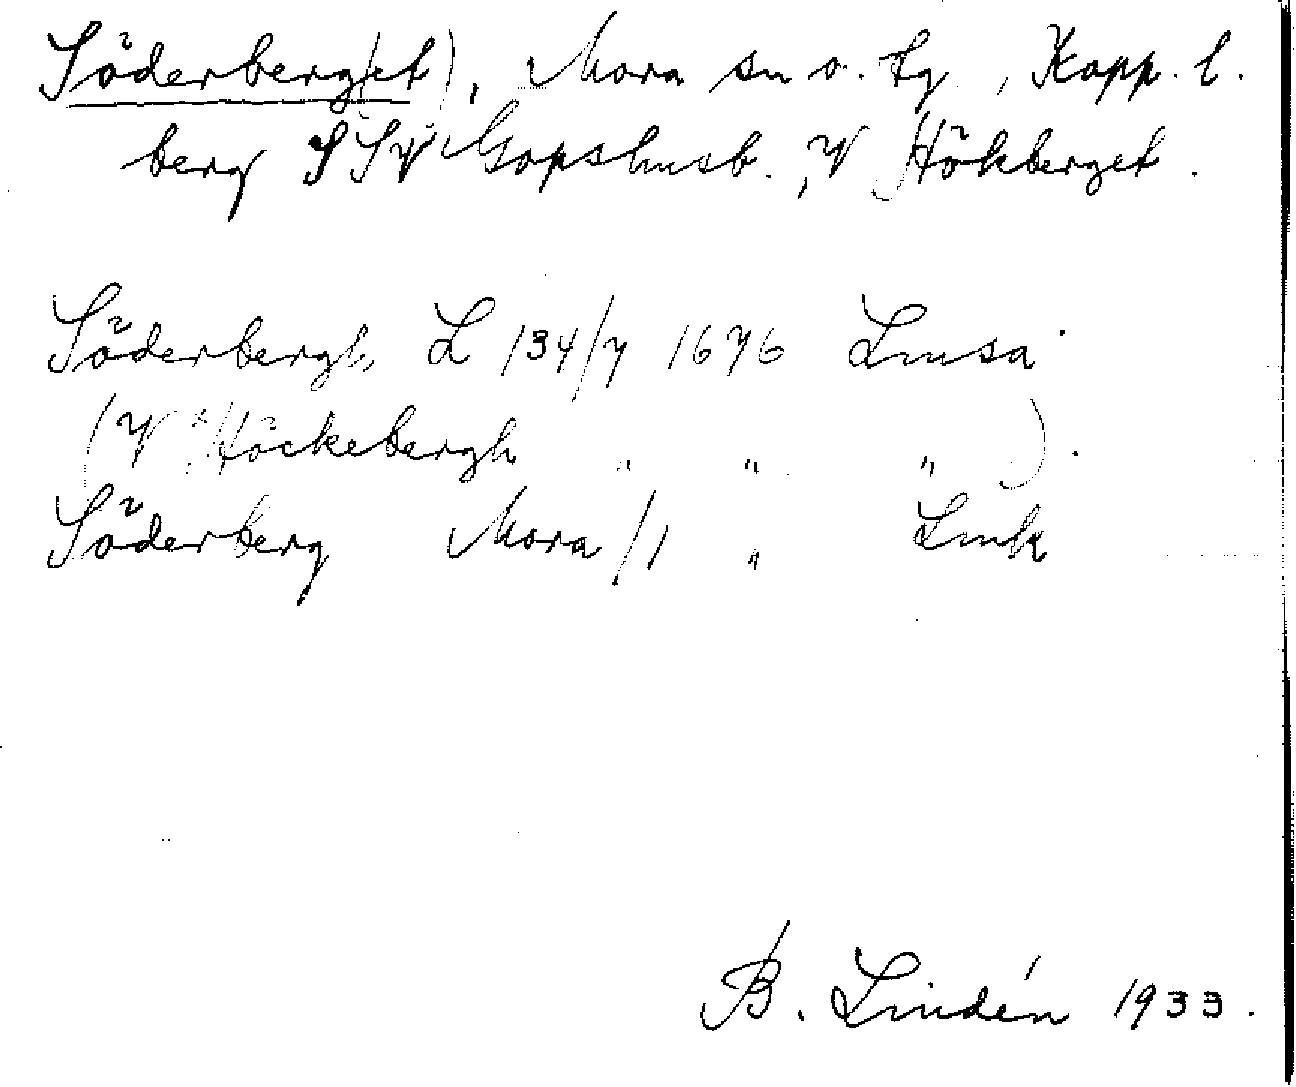 Söderberg(et), Mora sn o. tg, Kopp. l.
berg SSV Gopshusb., V Hökberget.
Söderbergh L 134/7 1676 Lmsa
(V Höckebergh " " ").
Söderberg Mora/1 " Lmk
B. Lindén 1933.